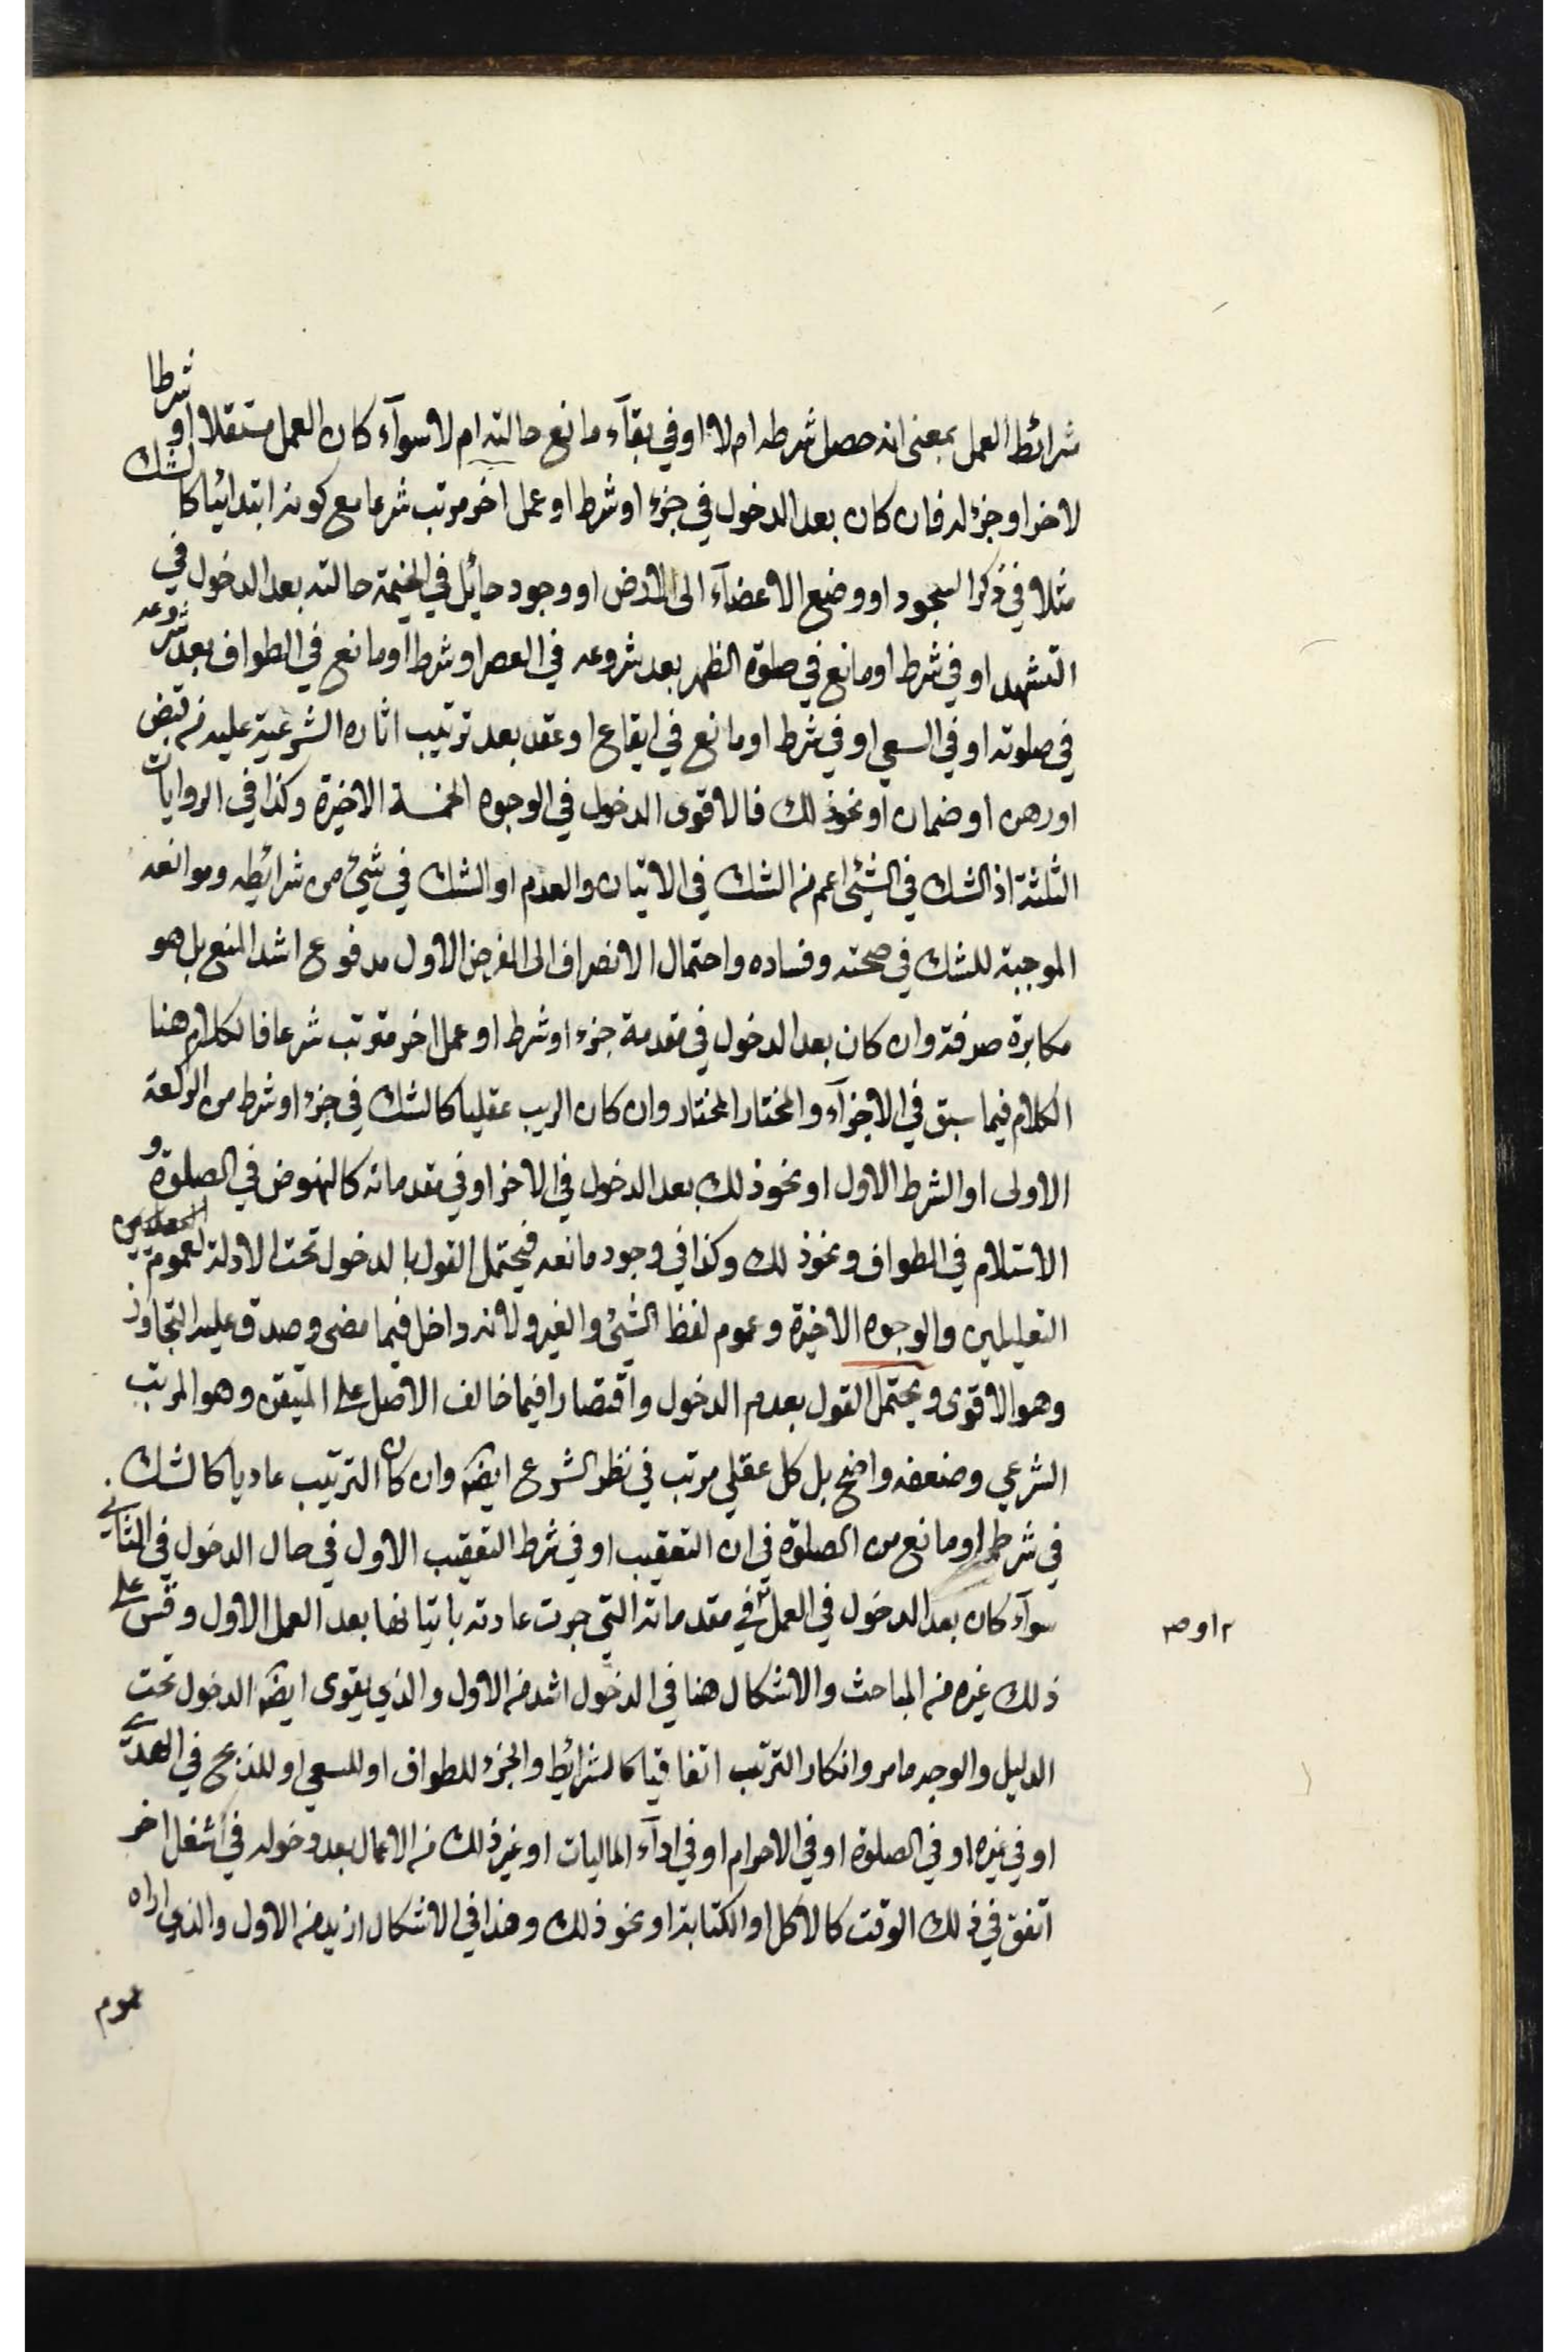 شرائط العمل بمعنى انه حصل شرطه ام لا او في بقآء مانع حالته ام لا سوآء كان العمل مستقلا او شرطا
لاخر او جزء له فان كان بعد الدخول في جزء او شرط او عمل اخر مرتب شرعا مع كونه ابتدائيا كالشك
مثلا في ذكر السجود او وضع الاعضآء الى الارض او وجود حائل في الجبهة حالته بعد الدخول في
التشهد او في شرط او مانع في صلوة الظهر بعد شروعه في العصر او شرط او مانع في الطواف بعد شروعه
في صلوته او في السعي او في شرط او مانع في ايقاع او عقد بعد ترتيب اثاره الشرعية عليه من قبض
او رهن او ضمان او نحو ذلك فالاقوى الدخول في الوجوه الخمسة الاخيرة وكذا في الروايات
الثلثة اذ الشك في الشيئ اعم من الشك في الاتيان والعدم او الشك في شيئ من شرائطه وموانعه
الموجبة للشك في صحته وفساده واحتمال الانصراف الى الفرض الاول مدفوع اشد المنع بل هو
مكابرة صرفة وان كان بعد الدخول في مقدمة جزء او شرط او عمل اخر مترتب شرعا فالكلام هنا
الكلام فيما سبق في الاجزآء والمختار المختار وان كان الريب عقليا كالشك في جزء او شرط من الركعة
الاولى او الشرط الاول او نحو ذلك بعد الدخول في الاخر او في مقدماته كالنهوض في الصلوة و
الاستلام في الطواف ونحو ذلك وكذا في وجود مانعه فيحتمل القول بالدخول تحت الادلة لعموم
التعليلين والوجوه الاخيرة وعموم لفظ الشيئ والغير ولانه داخل فيما مضى وصدق عليه التجاوز
وهو الاقوى ويحتمل القول بعدم الدخول واقتصارا فيما خالف الاصل على المتيقن وهو المرتب
الشرعي وضعفه واضح بل كل عقلي مرتب في نظر الشرع ايضا وان كان الترتيب عاديا كالشك
في شرط او مانع من الصلوة في ان التعقيب او في شرط التعقيب الاول في حال الدخول في الثاني
سوآء كان بعد الدخول في العمل في مقدماته التي جرت عادته باتيانها بعد العمل الاول وقس على
٢ او صح
ذلك غيره من المباحث والاشكال هنا في الدخول اشد من الاول والذي يقوى ايضا الدخول تحت
الدليل والوجه ما مر وان كان الترتب اتفاقيا كالشرائط والجزء للطواف او للسعي او للذبح في الهدي
او في غيره او في الصلوة او في الاحرام او في ادآء الماليات او غير ذلك من الاعمال بعد دخوله في شغل اخر
اتفق في ذلك الوقت كالاكل او الكتابة او نحو ذلك وهذا في الاشكال ازيد من الاول والذي اراه
عموم